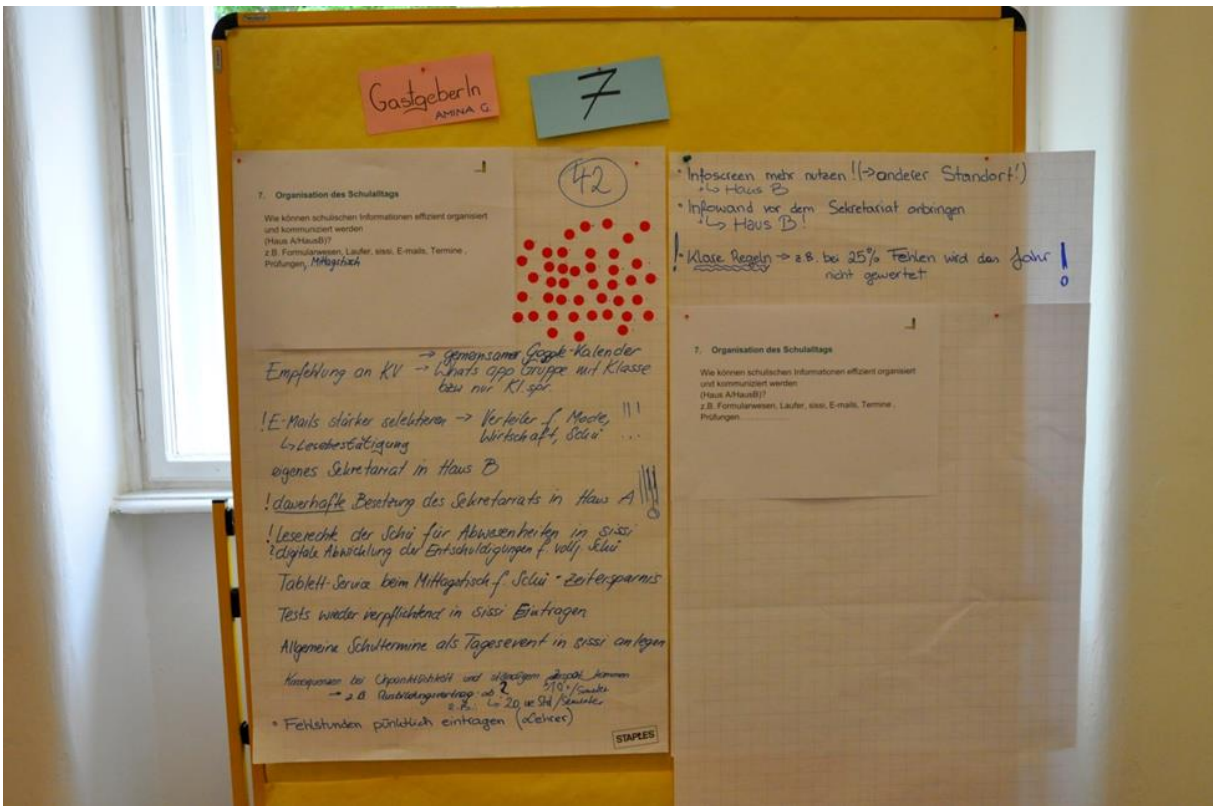 GastgeberIn
AMINA G.
7
7. Organisation des Schulalltags
Wie können schulischen Informationen effizient organisiert
und kommuniziert werden
(Haus A/HausB)?
z.B. Formularwesen, Laufer, sissi, E-mails, Termine ,
Prüfungen, Mittagstisch
42
Empfehlung an KV → gemeinsamer Google-Kalender
→ Whats app Gruppe mit Klasse
bzw nur Kl.spr.
! E-Mails stärker selektieren → Verteiler f. Mode, !!!
Wirtschaft, Schü
↳ Lesebestätigung
eigenes Sekretariat in Haus B
! dauerhafte Besetzung des Sekretariats in Haus A !!!
! Leserechte der Schü für Abwesenheiten in sissi
? digitale Abwicklung der Entschuldigungen f. vollj. Schü
Tablett-Service beim Mittagstisch f. Schü - Zeitersparnis
Tests wieder verpflichtend in sissi Eintragen
Allgemeine Schultermine als Tagesevent in sissi anlegen
Konsequenzen bei Unpünktlichkeit und ständigem Zuspät kommen
→ z.B. Ausbildungsvertrag ab ?
z.B.: ↳ 20 ue Std/Semester
• Fehlstunden pünktlich eintragen (Lehrer)
STAPLES
• Infoscreen mehr nutzen ! (→ anderer Standort!)
↳ Haus B
• Infowand vor dem Sekretariat anbringen
↳ Haus B!
! • Klare Regeln → z.B. bei 25% Fehlen wird das Jahr !
nicht gewertet
7. Organisation des Schulalltags
Wie können schulischen Informationen effizient organisiert
und kommuniziert werden
(Haus A/HausB)?
z.B. Formularwesen, Laufer, sissi, E-mails, Termine ,
Prüfungen